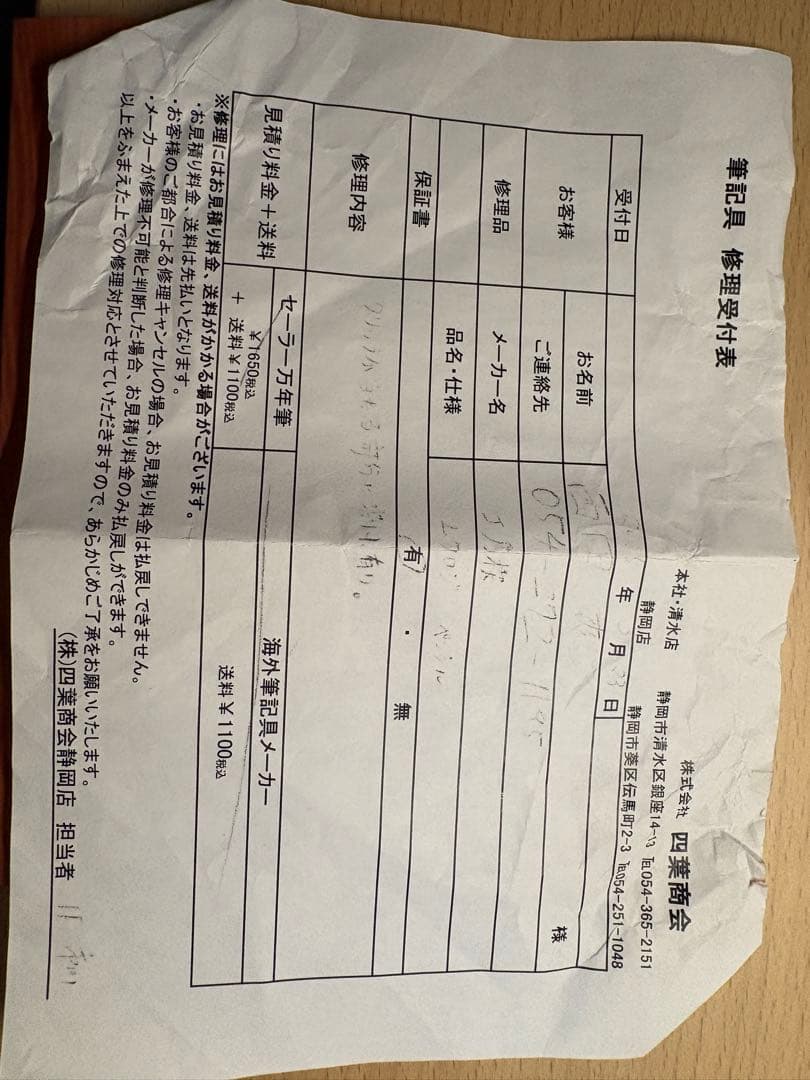 筆記具 修理受付表
株式会社 四葉商会
本社・清水店 静岡市清水区銀座14-13 ℡054-365-2151
静岡店 静岡市葵区伝馬町2-3 ℡054-251-1048
受付日 年 月 日
お客様 お名前 様
ご連絡先 054-
修理品 メーカー名
品名・仕様
保証書 有 ・ 無
修理内容
見積り料金+送料 セーラー万年筆 海外筆記具メーカー
¥1650税込
+ 送料¥1100税込 送料¥1100税込
※修理にはお見積り料金、送料がかかる場合がございます。
・お見積り料金、送料は先払いとなります。
・お客様のご都合による修理キャンセルの場合、お見積り料金は払戻しできません。
・メーカーが修理不可能と判断した場合、お見積り料金のみ払戻しができます。
以上をふまえた上での修理対応とさせていただきますので、あらかじめご了承をお願いいたします。
(株)四葉商会静岡店 担当者